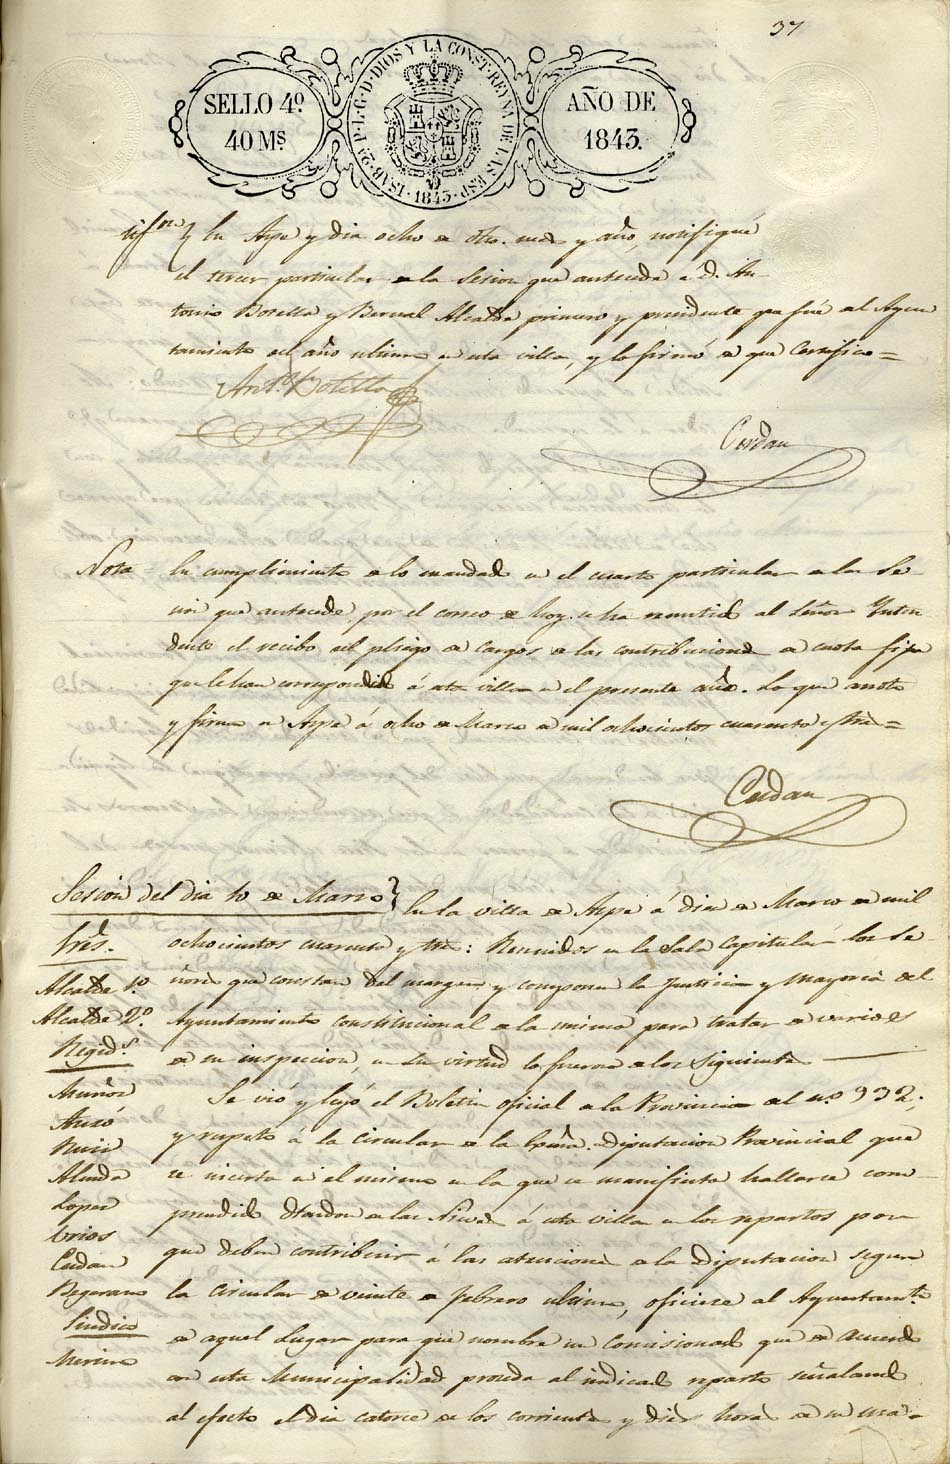 37
SELLO 4º
40 Ms
ISAB. 2ª P. L. G. D. DIOS Y LA CONST. REYNA DE LAS ESP. 1843
AÑO DE
1843.
En Aspe y dia ocho de dho. mes y año, notifiqué
el tercer particular de la Sesion que antecede á d. An-
tonio Botella y Bernal Alcalde primero y presidente que fué del Ayun
tamiento del año ultimo en esta villa, y lo firmó de que certifico=
Antº. Botella
Cerdan
Nota = En cumplimiento de lo mandado en el cuarto particular de la Se-
sion que antecede, por el correo de hoy se ha remitido al Señor Inten-
dente el recibo del pliego de cargos de las contribuciones de cuota fija
que le han correspondido á esta villa en el presente año. Lo que anoto
y firmo en Aspe á ocho de Marzo de mil ochocientos cuarenta y tres=
Cerdan
Sesion del dia 10 de Marzo } En la villa de Aspe á diez de Marzo de mil
Sres.
ochocientos cuarenta y tres: Reunidos en la Sala Capitular los Se-
Alcalde 1º.
ñores que constan del margen y componen la Justicia y Mayoria del
Alcalde 2º.
Ayuntamiento constitucional de la misma para tratar de varios
Regids.
de su inspeccion, en su virtud lo fueron de los siguientes
Muñoz
Se vió y leyó el Boletin oficial de la Provincia del nº 932;
Auzó
y respeto á la circular de la Exma. Diputacion Provincial que
Ruiz
se incerta en el mismo en la que se manifiesta hallarse com-
Almda
Lopez
prendido de las Nieves á esta villa en los repartos por
Erios
que deben contribuir á las atenciones de la Diputacion segun
Cerdan
Begerano
la circular de veinte de febrero ultimo, oficiese al Ayuntamto.
Sindico
de aquel Lugar para que nombre un comisionado que de acuerdo
Merino
con esta Municipalidad proceda al indicado reparto señalando
al efecto el dia catorce de los corrientes y diez horas de su ma-